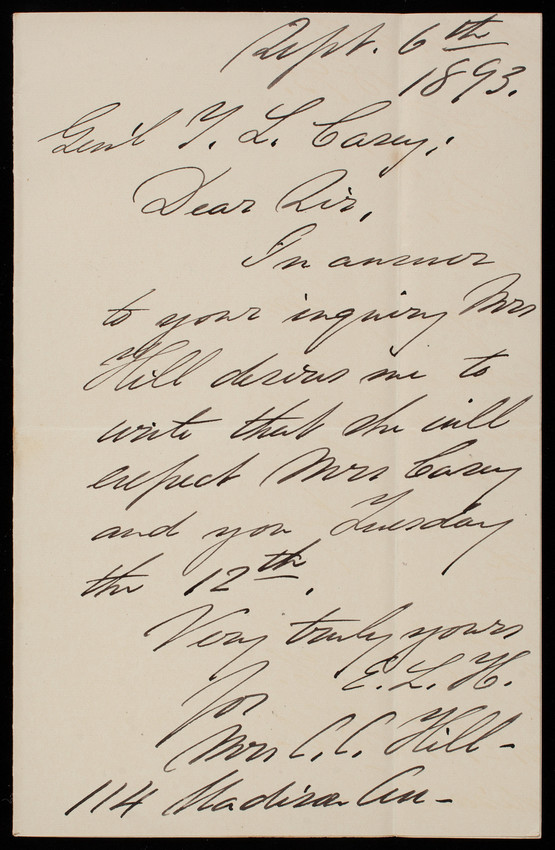 Sept. 6th
1893.
Gen'l T. L. Casey,
Dear Sir,
In answer
to your inquiry Mrs
Hill desires me to
write that she will
expect Mrs Casey
and you Tuesday
the 12th.
Very truly yours
E. L. H.
for
Mrs C. C. Hill -
114 Madison Av -